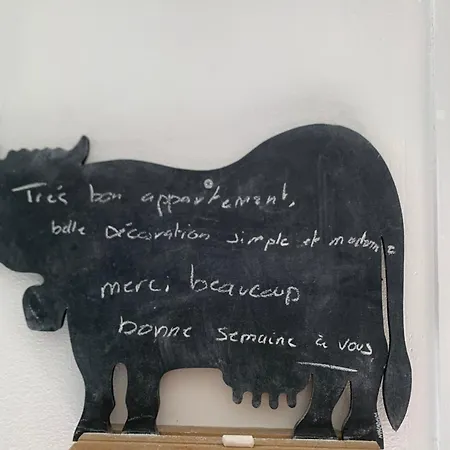 Très bon appartement,
belle Décoration simple et moderne
merci beaucoup
bonne semaine à vous